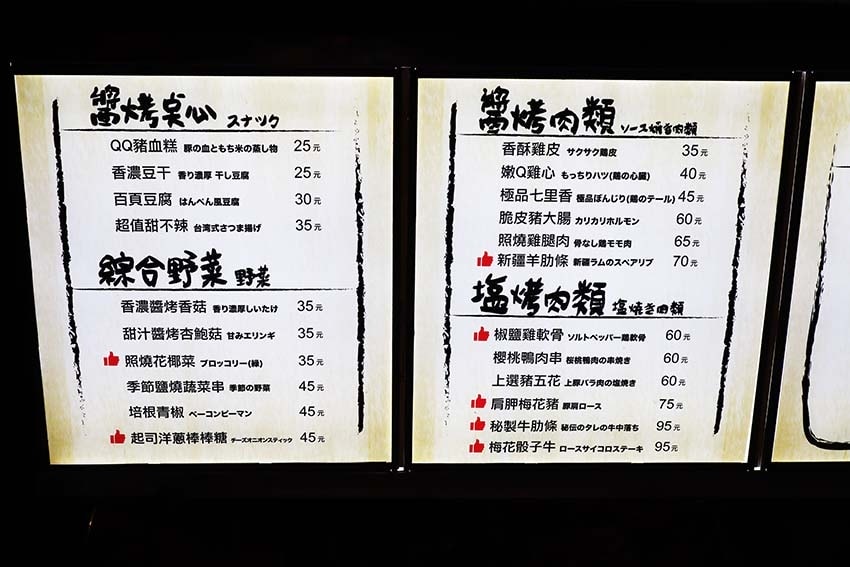 醬烤桌心 スナック
QQ豬血糕 豚の血ともち米の蒸し物 25元
香濃豆干 香り濃厚 干し豆腐 25元
百頁豆腐 はんぺん風豆腐 30元
超值甜不辣 台湾式さつま揚げ 35元
綜合野菜 野菜
香濃醬烤香菇 香り濃厚しいたけ 35元
甜汁醬烤杏鮑菇 甘みエリンギ 35元
照燒花椰菜 ブロッコリー(緑) 35元
季節鹽燒蔬菜串 季節の野菜 45元
培根青椒 ベーコンピーマン 45元
起司洋蔥棒棒糖 チーズオニオンスティック 45元
醬烤肉類 ソース焼き肉類
香酥雞皮 サクサク鶏皮 35元
嫩Q雞心 もっちりハツ(鶏の心臓) 40元
極品七里香 極品ぼんじり(鶏のテール) 45元
脆皮豬大腸 カリカリホルモン 60元
照燒雞腿肉 骨なし鶏モモ肉 65元
新疆羊肋條 新疆ラムのスペアリブ 70元
塩烤肉類 塩焼き肉類
椒鹽雞軟骨 ソルトペッパー鶏軟骨 60元
櫻桃鴨肉串 桜桃鴨肉の串焼き 60元
上選豬五花 上豚バラ肉の塩焼き 60元
肩胛梅花豬 豚肩ロース 75元
秘製牛肋條 秘伝のタレの牛中落ち 95元
梅花骰子牛 ロースサイコロステーキ 95元